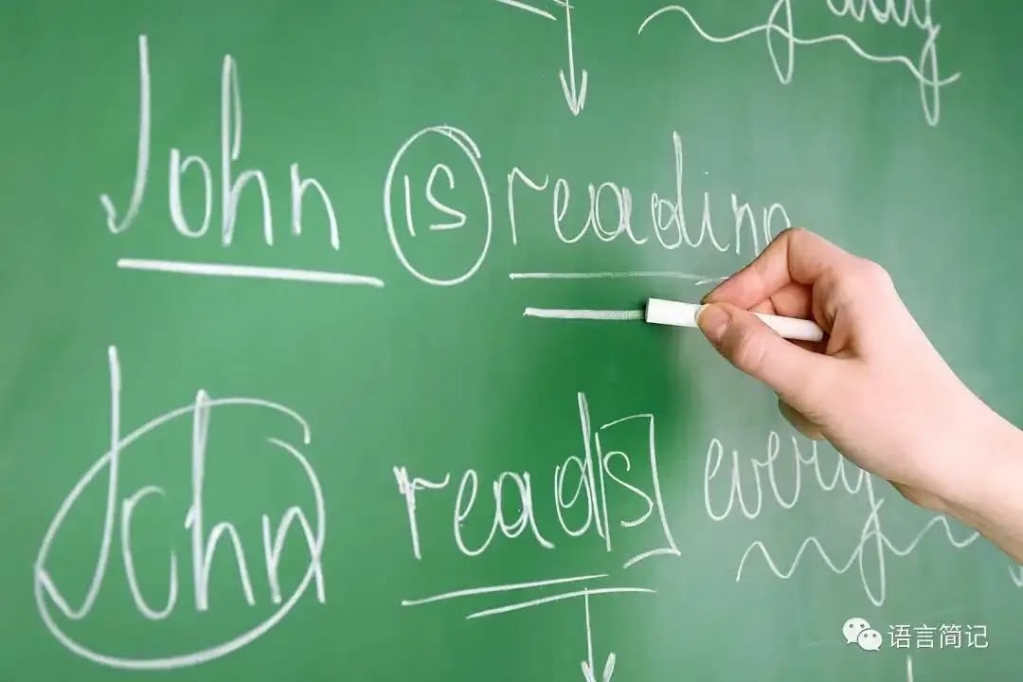 John is reading
John reads every
语言简记